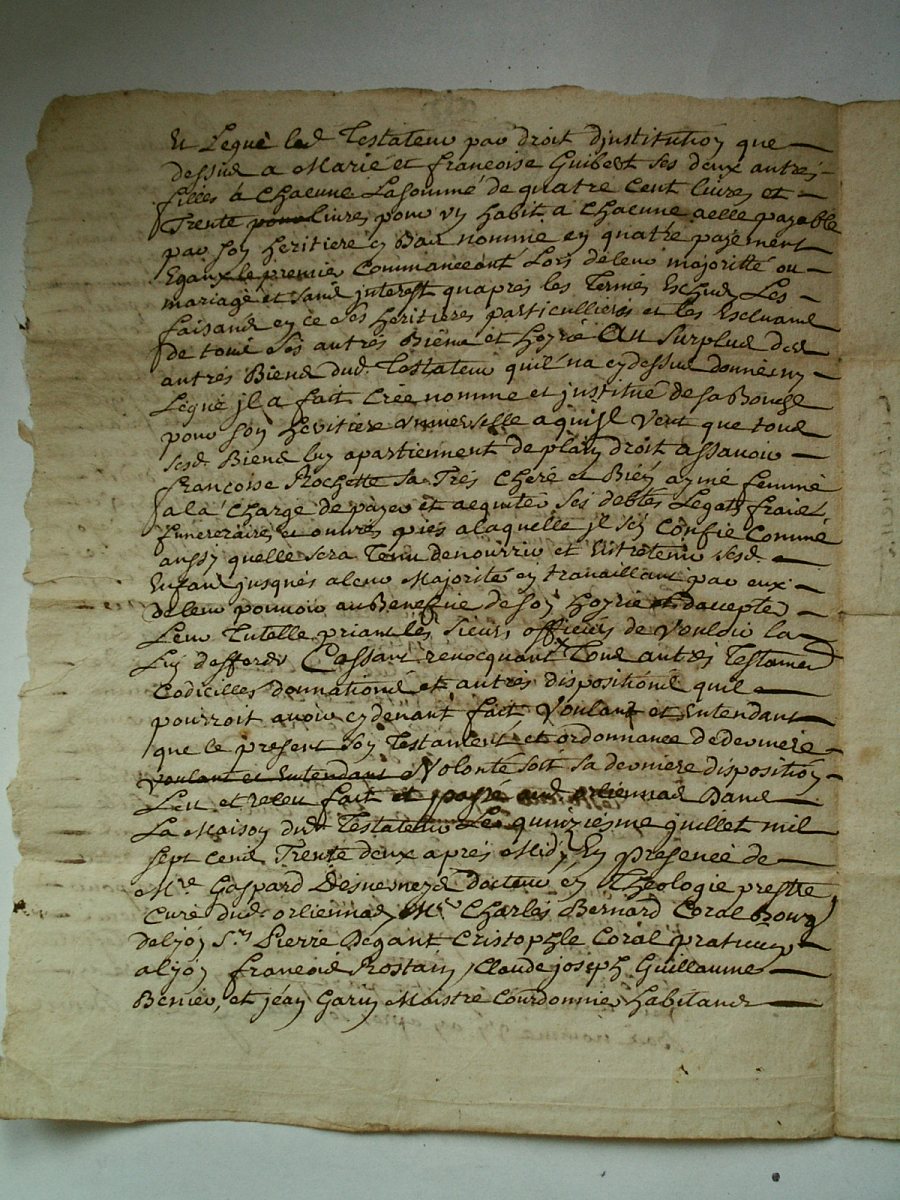 Et Legue led Testateur par droit djnstitution que
dessus a Marie et francoise Guibert ses deux autres
filles à Chacune Lasomme de quatre Cent livres et
Trente pour livres pour un habit a Chacune aelle payable
par son heritiere cy Bas nommée en quatre payement
Egaux le premier Commanceant Lors deleur majoritté ou
mariage et sans jnterest quapres les Termes Eschus Les
faisand en ce ses heritieres particullieres et les Excluand
de tous ses autres Biens et hoyrie Au Surplus des
autres Biens dud. Testateur quil na cydessus donnés ny
Légué jl a fait Créé nomme et jnstitué de sa Bouche
pour son heritiere universelle a quijl veut que tous
sesd. Biens luy apartiennent de plain droit assavoir
francoise Rochette sa Trés Chere et Bién aymé femme
a la Charge de payer et aquiter ses debtes Legats frais
funeraires et ouvres pies a laquelle jl sen Confie Comme
aussy quelle sera Tenu de nourrir et Entretenir sesd.
Enfans jusques aleur Majorité en travaillant par eux
deleur pouvoir au Benefice de son hoyrie et daccepter
Leur Tutelle priant les sieurs officiers de vouloir la
Luy defferer Cassant revocquant Tous autres Testamens
Codicilles donnations et autres dispositions quil
pourroit avoir cydevant fait Voulant et Entendant
que le present son Testament et ordonnance de derniere
voulant et Entendant Volonté soit sa derniere disposition
Leu et releu fait et passé aud orliennas Dans
La Maison dud Testateur Le quinziesme juillet mil
sept cens Trente deux apres Midy En presence de
Mre Gaspard Desvernays docteur en Theologie prestre
Curé dud. orliennas Mr. Charles Bernard Coral Bourg
delyon Sr. Pierre Degant Cristophle Coral praticien
alyon francois Rostain Claude joseph Guillaume
Benier, et jéan Garin Maistre Courdonnier habitans